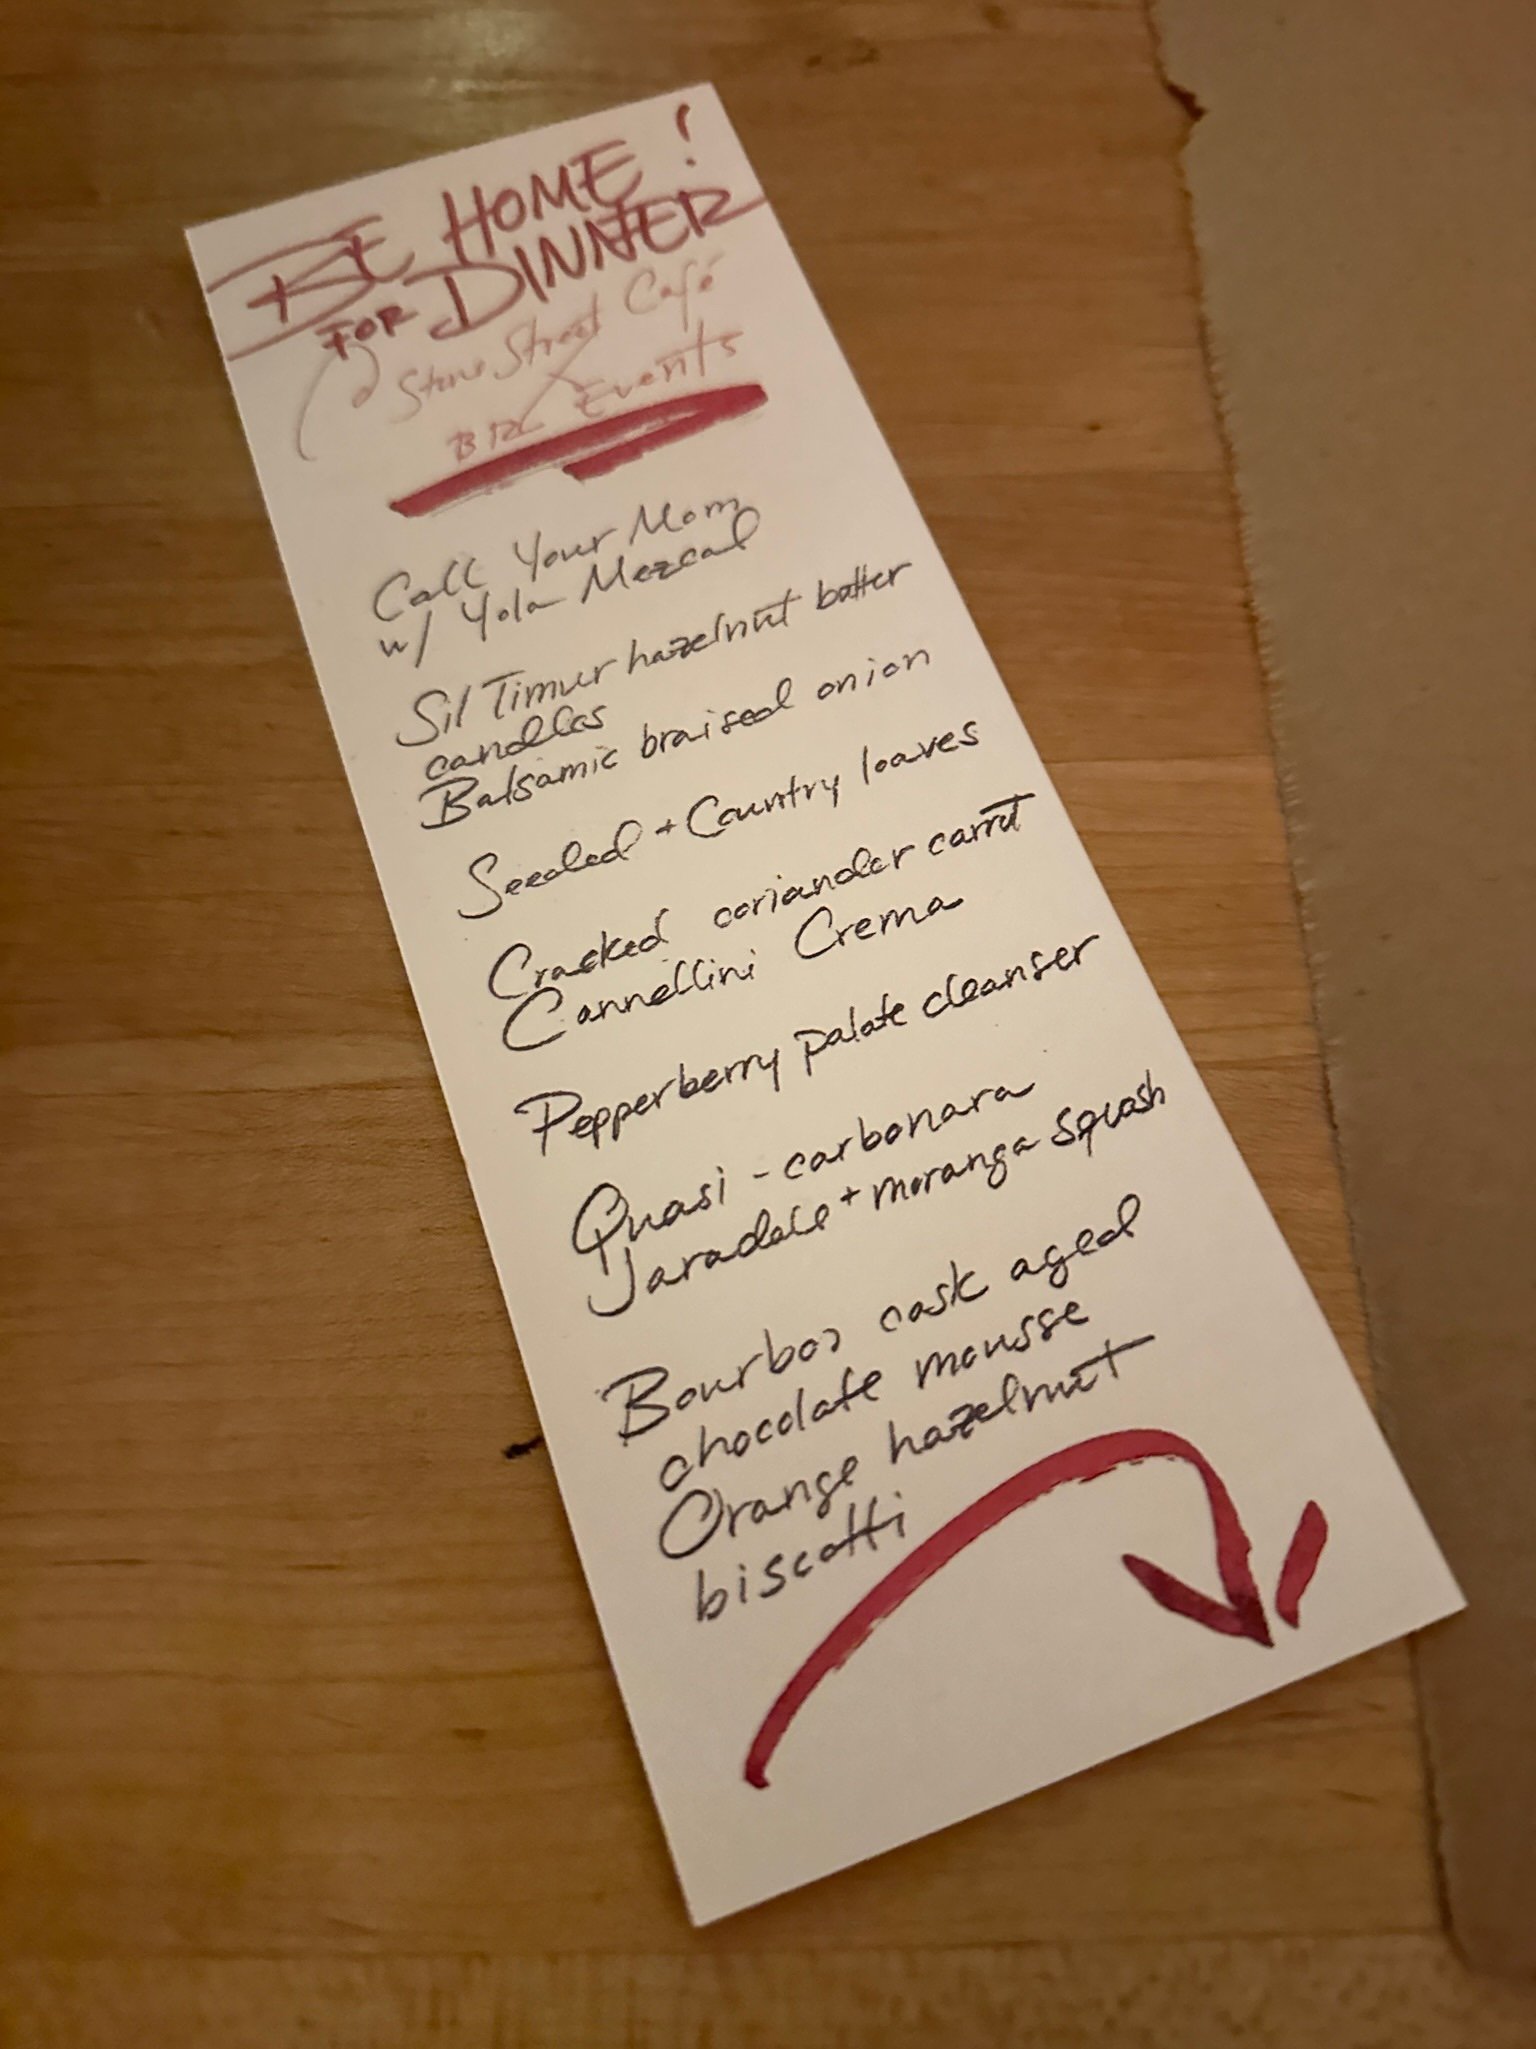 BE HOME!
FOR DINNER
@ Stone Street Café
X
Events
Call Your Mom
w/ Yola Mezcal
Sil Timur hazelnut butter
candles
Balsamic braised onion
Seeded + Country loaves
Cracked coriander carrot
Cannellini Crema
Pepperberry palate cleanser
Quasi-carbonara
Jaradale + moranga squash
Bourbon cask aged
chocolate mousse
Orange hazelnut
biscotti